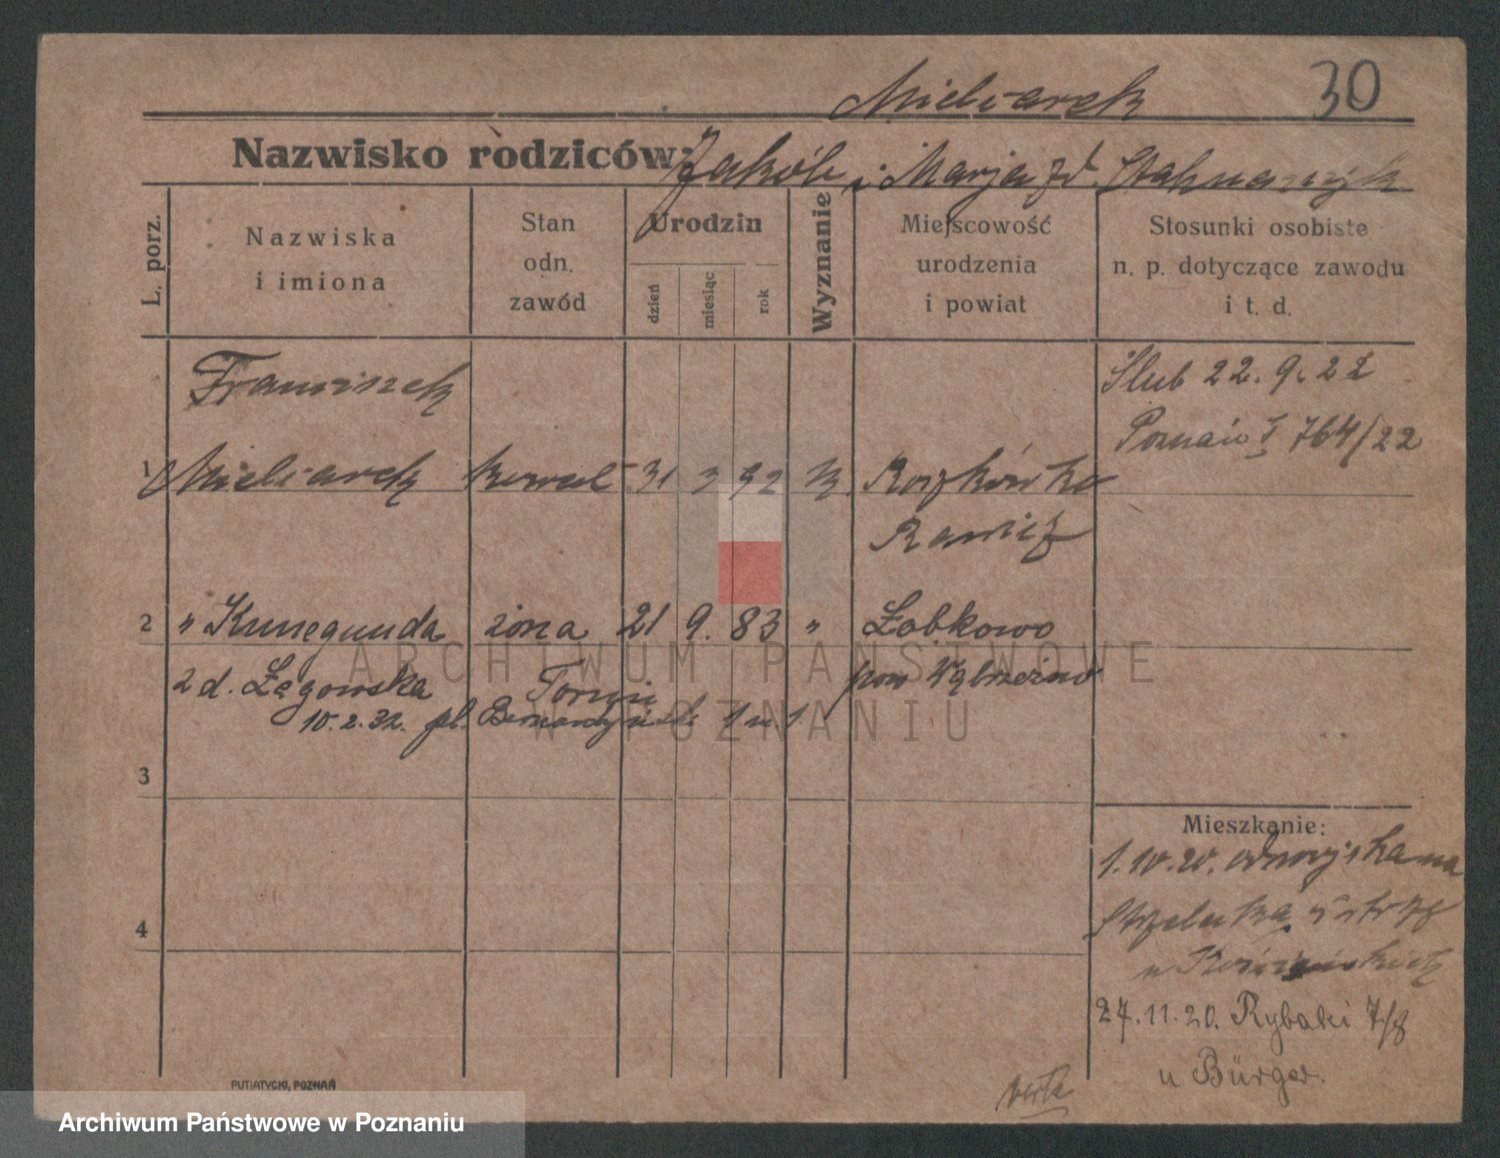 Mielcarek 30
Nazwisko rodziców: Jakób i Marja zd.
L. porz.
Nazwiska
i imiona
Stan
odn.
zawód
Urodzin
dzień
miesiąc
rok
Wyznanie
Miejscowość
urodzenia
i powiat
Stosunki osobiste
n. p. dotyczące zawodu
i t. d.
Franciszek
Ślub 22. 9. 22
Poznań I 764/22
1 Mielcarek kowal 31 3 92 K Roszkówko
Rawicz
2 " Kunegunda żona 21 9. 83 " Łobkowo
zd. Łęgowska pow Wąbrzeźno
Toruń
10.2.32. pl. Bernardyński 1 m. 1
3
4
Mieszkanie:
1.10.20.
Strzelecka
u
27.11.20. Rybaki 7/8
u Bürger.
PUTIATYCKI, POZNAŃ
ARCHIWUM PAŃSTWOWE
W POZNANIU
Archiwum Państwowe w Poznaniu